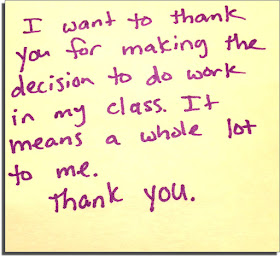 I want to thank
you for making the
decision to do work
in my class. It
means a whole lot
to me.
Thank you.